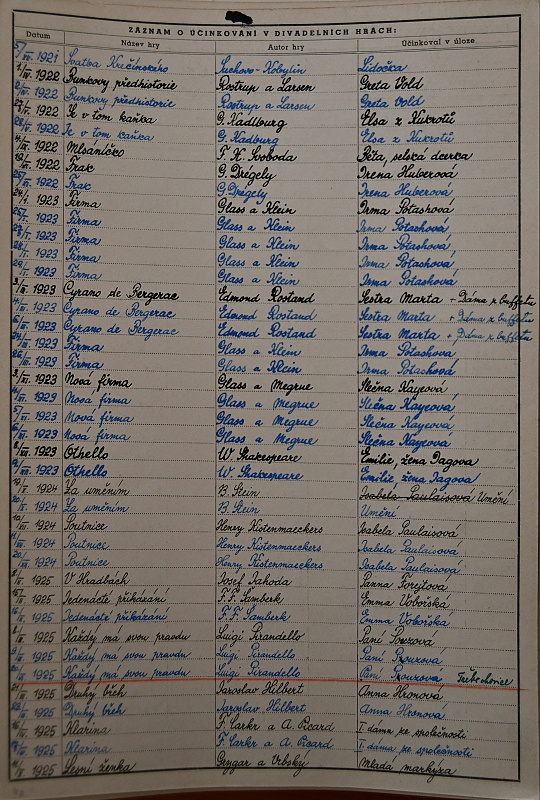 ZÁZNAM O ÚČINKOVÁNÍ V DIVADELNÍCH HRÁCH:
Datum Název hry Autor hry Účinkoval v úloze
1921 Svatba Krečinského Suchovo-Kobylin Lidočka
1922 Runkovy předhistorie Rostrup a Larsen Greta Vold
1922 Runkovy předhistorie Rostrup a Larsen Greta Vold
1922 Je v tom kaňka G. Kadlburg Elsa z Kukrotů
1922 Je v tom kaňka G. Kadlburg Elsa z Kukrotů
1922 Mlsáníčko F. X. Svoboda Běta, selská dcerka
1922 Frak G. Drégely Irena Huberová
1922 Frak G. Drégely Irena Huberová
1923 Firma Glass a Klein Irma Potashová
1923 Firma Glass a Klein Irma Potashová
1923 Firma Glass a Klein Irma Potashová
1923 Firma Glass a Klein Irma Potashová
1923 Firma Glass a Klein Irma Potashová
1923 Cyrano de Bergerac Edmond Rostand Sestra Marta + Dáma z buffetu
1923 Cyrano de Bergerac Edmond Rostand Sestra Marta + Dáma z buffetu
1923 Cyrano de Bergerac Edmond Rostand Sestra Marta + Dáma z buffetu
1923 Firma Glass a Klein Irma Potashová
1923 Firma Glass a Klein Irma Potashová
1923 Nová firma Glass a Megrue Slečna Kayeová
1923 Nová firma Glass a Megrue Slečna Kayeová
1923 Nová firma Glass a Megrue Slečna Kayeová
1923 Nová firma Glass a Megrue Slečna Kayeová
1923 Othello W. Shakespeare Emilie, žena Jagova
1923 Othello W. Shakespeare Emilie, žena Jagova
1924 Za uměním B. Stein Isabela Paulaisová Umění
1924 Za uměním B. Stein Umění
1924 Poutnice Henry Kistenmaeckers Isabela Paulaisová
1924 Poutnice Henry Kistenmaeckers Isabela Paulaisová
1924 Poutnice Henry Kistenmaeckers Isabela Paulaisová
1925 V Hradbách Josef Jahoda Panna Forejtova
1925 Jedenácté přikázání F. F. Šamberk Emma Voborská
1925 Jedenácté přikázání F. F. Šamberk Emma Voborská
1925 Každý má svou pravdu Luigi Pirandello Paní
1925 Každý má svou pravdu Luigi Pirandello Paní
1925 Každý má svou pravdu Luigi Pirandello Paní
1925 Druhý břeh Jaroslav Hilbert Anna Hronová
1925 Druhý břeh Jaroslav Hilbert Anna Hronová
1925 Klarina F. Carkr a A. Picard I. dáma ze společnosti
1925 Klarina F. Carkr a A. Picard I. dáma ze společnosti
1925 Lesní ženka Grygar a Vrbský Mladá markýza